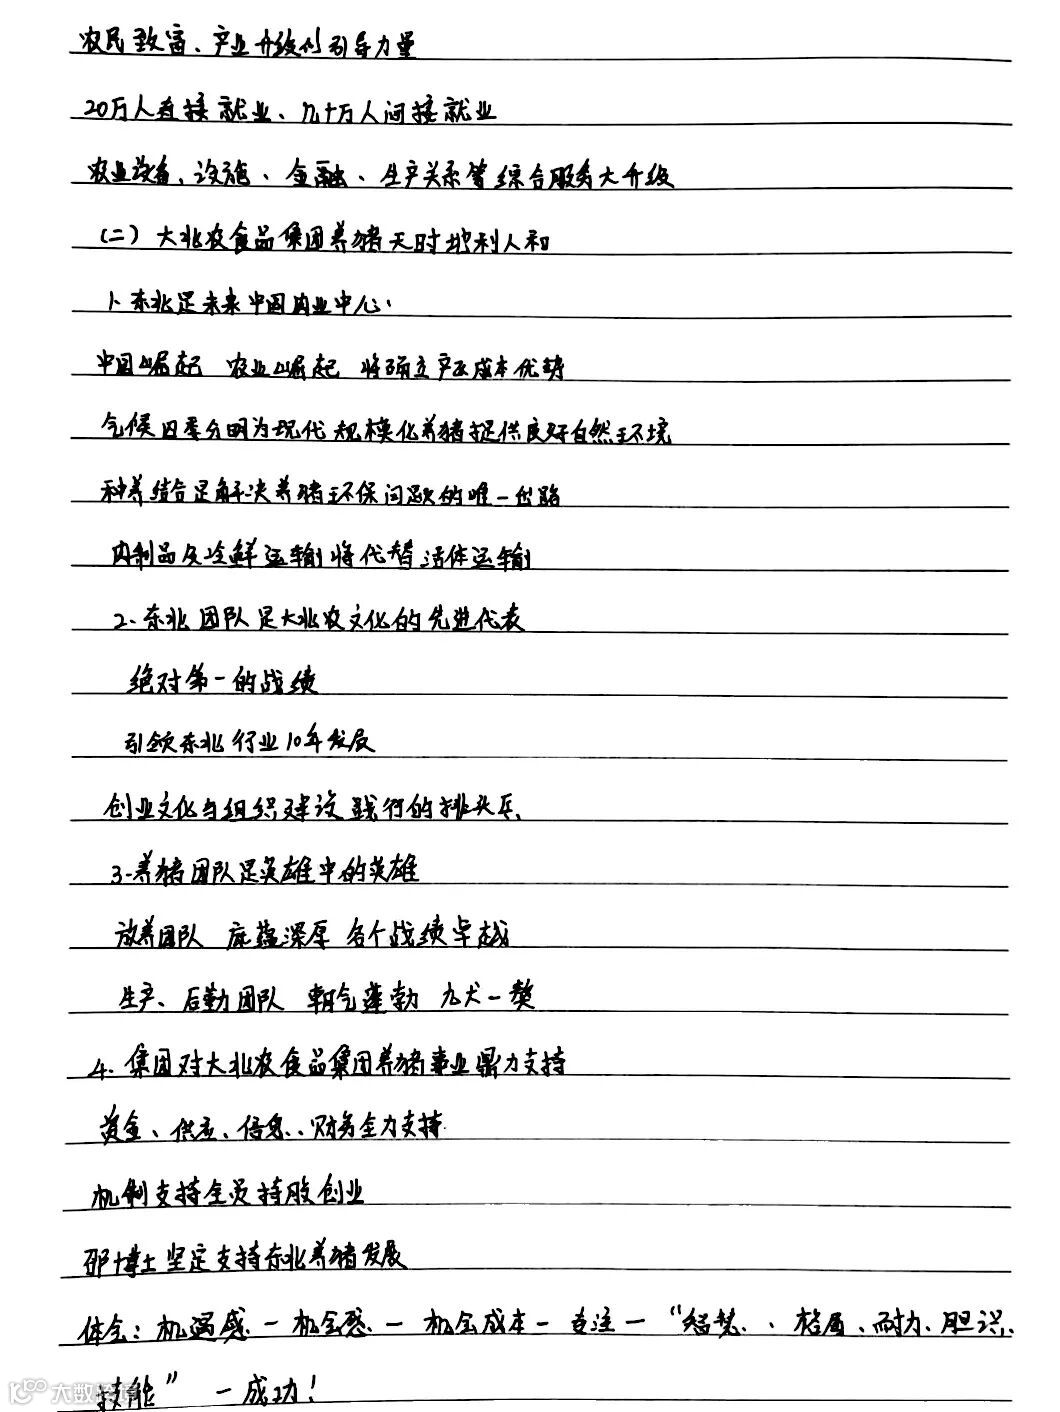 农民致富、产业升级的引导力量
20万人直接就业、几十万人间接就业
农业设备、设施、金融、生产关系等综合服务大升级
(二)大北农食品集团养猪天时地利人和
1、东北是未来中国肉业中心、
中国崛起 农业崛起 将确立产区成本优势
气候四季分明为现代规模化养猪提供良好自然环境
种养结合是解决养猪环保问题的唯一出路
肉制品及冷鲜运输将代替活体运输
2、东北团队是大北农文化的先进代表
绝对第一的战绩
引领东北行业10年发展
创业文化与组织建设践行的排头兵、
3、养猪团队是英雄中的英雄
放养团队 底蕴深厚 各个战绩卓越
生产、后勤团队 朝气蓬勃 九犬一獒
4、集团对大北农食品集团养猪事业鼎力支持
资金、供应、信息、财务全力支持
机制支持全员持股创业
邵博士坚定支持东北养猪发展
体会:机遇感—机会感—机会成本—专注—“智慧、格局、耐力、胆识、
技能”—成功!
大数跨境